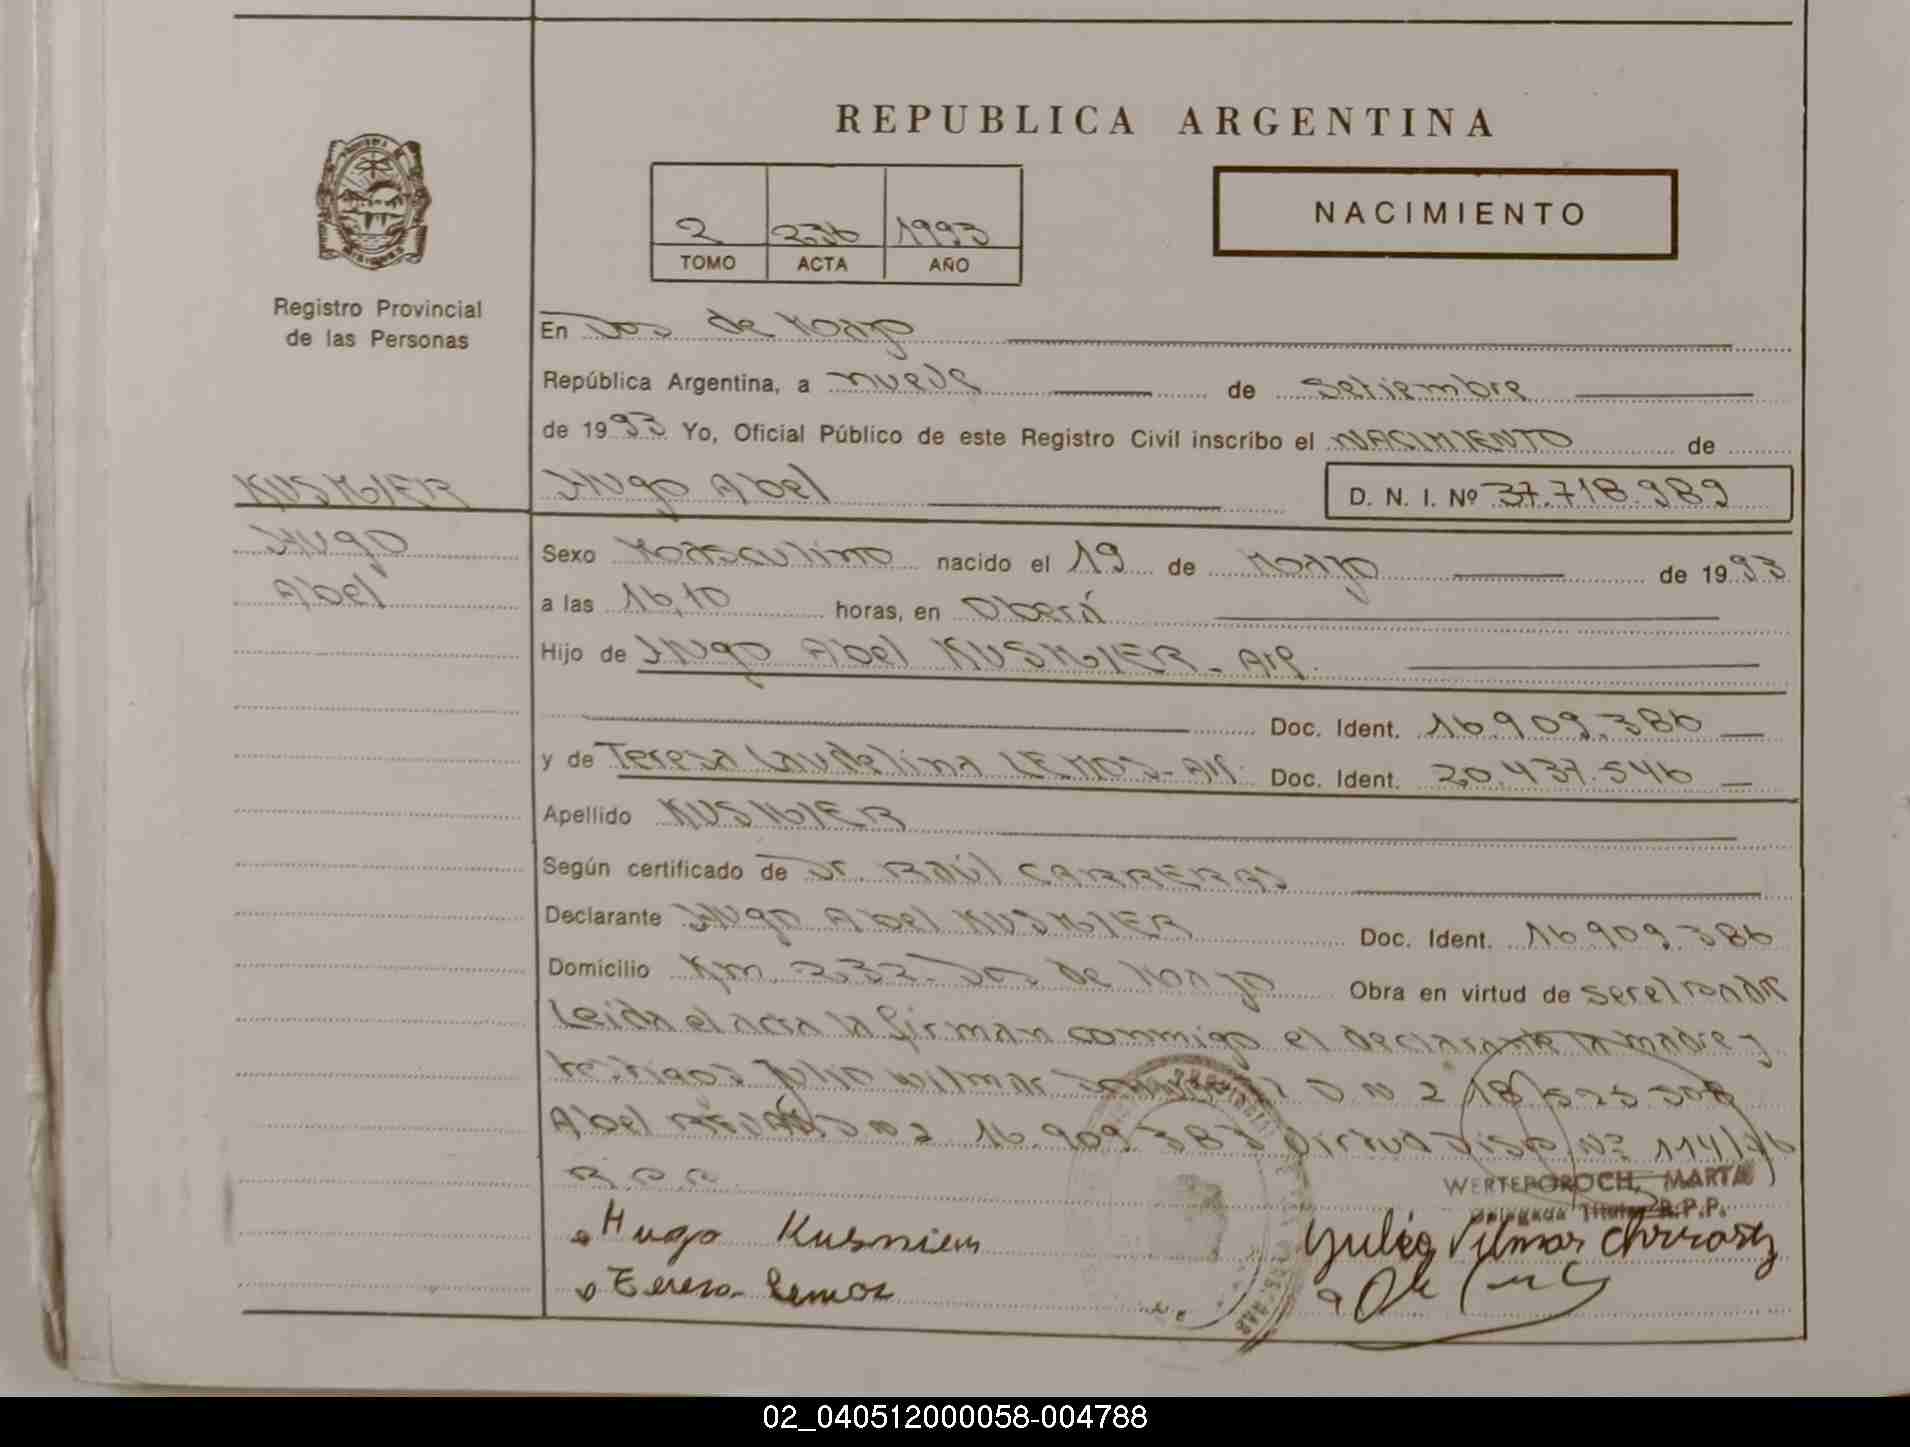 REPUBLICA ARGENTINA
NACIMIENTO
2 236 1993
TOMO ACTA AÑO
Registro Provincial
de las Personas
En Dos de Mayo
República Argentina, a nueve de Setiembre
de 1993 Yo, Oficial Público de este Registro Civil inscribo el NACIMIENTO de
KUSNIER Hugo Abel D. N. I. Nº 37.718.989
Hugo
Abel
Sexo Masculino nacido el 19 de Mayo de 1993
a las 16,10 horas, en Oberá
Hijo de Hugo Abel KUSNIER - Arg.
Doc. Ident. 16.909.386
y de Teresa Laudelina LEMOS - Arg. Doc. Ident. 20.437.546
Apellido KUSNIER
Según certificado de Dr. RAÚl CARRERAS
Declarante Hugo Abel KUSNIER Doc. Ident. 16.909.386
Domicilio Km. 232 - Dos de Mayo Obra en virtud de ser el PADRE
Leida el acta la firman conmigo el declarante la madre y
testigos Julio Wilmar D N I 18.525.508
Abel D N I 16.909.383 Virtud Disp Nº 114/76
R.P.P.
WERTEPOROCH, MARTA
Delegada Titular R.P.P.
Hugo Kusnier
Yulio Vilmar
Teresa Lemos
02_040512000058-004788